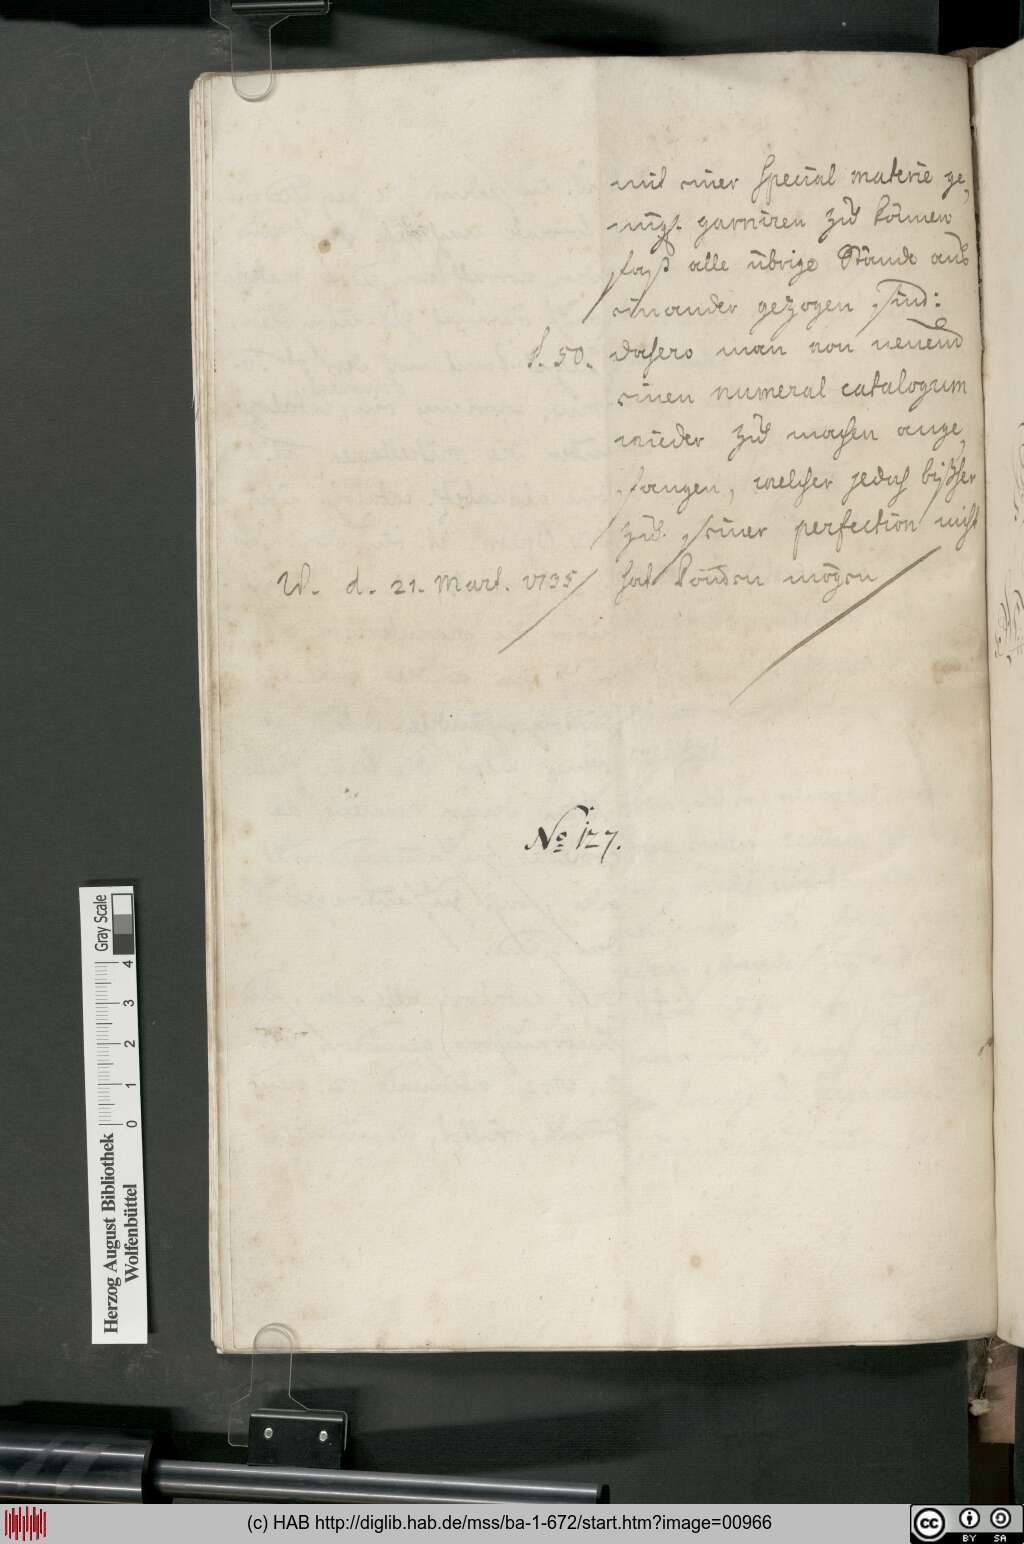 mit einer Special materie ge,
nügs. garniren zu können
fast alle übrige Stände aus
einander gezogen sind:
§. 50. dahero man von neuem
einen numeral catalogum
wieder zu machen ange,
fangen, welcher jedoch bißher
zu seiner perfection nicht
W. d. 21. Mart. 1735 hat können mögen
No 127.
Gray Scale
4
3
2
1
0
Herzog August Bibliothek
Wolfenbüttel
(c) HAB http://diglib.hab.de/mss/ba-1-672/start.htm?image=00966
cc
BY SA